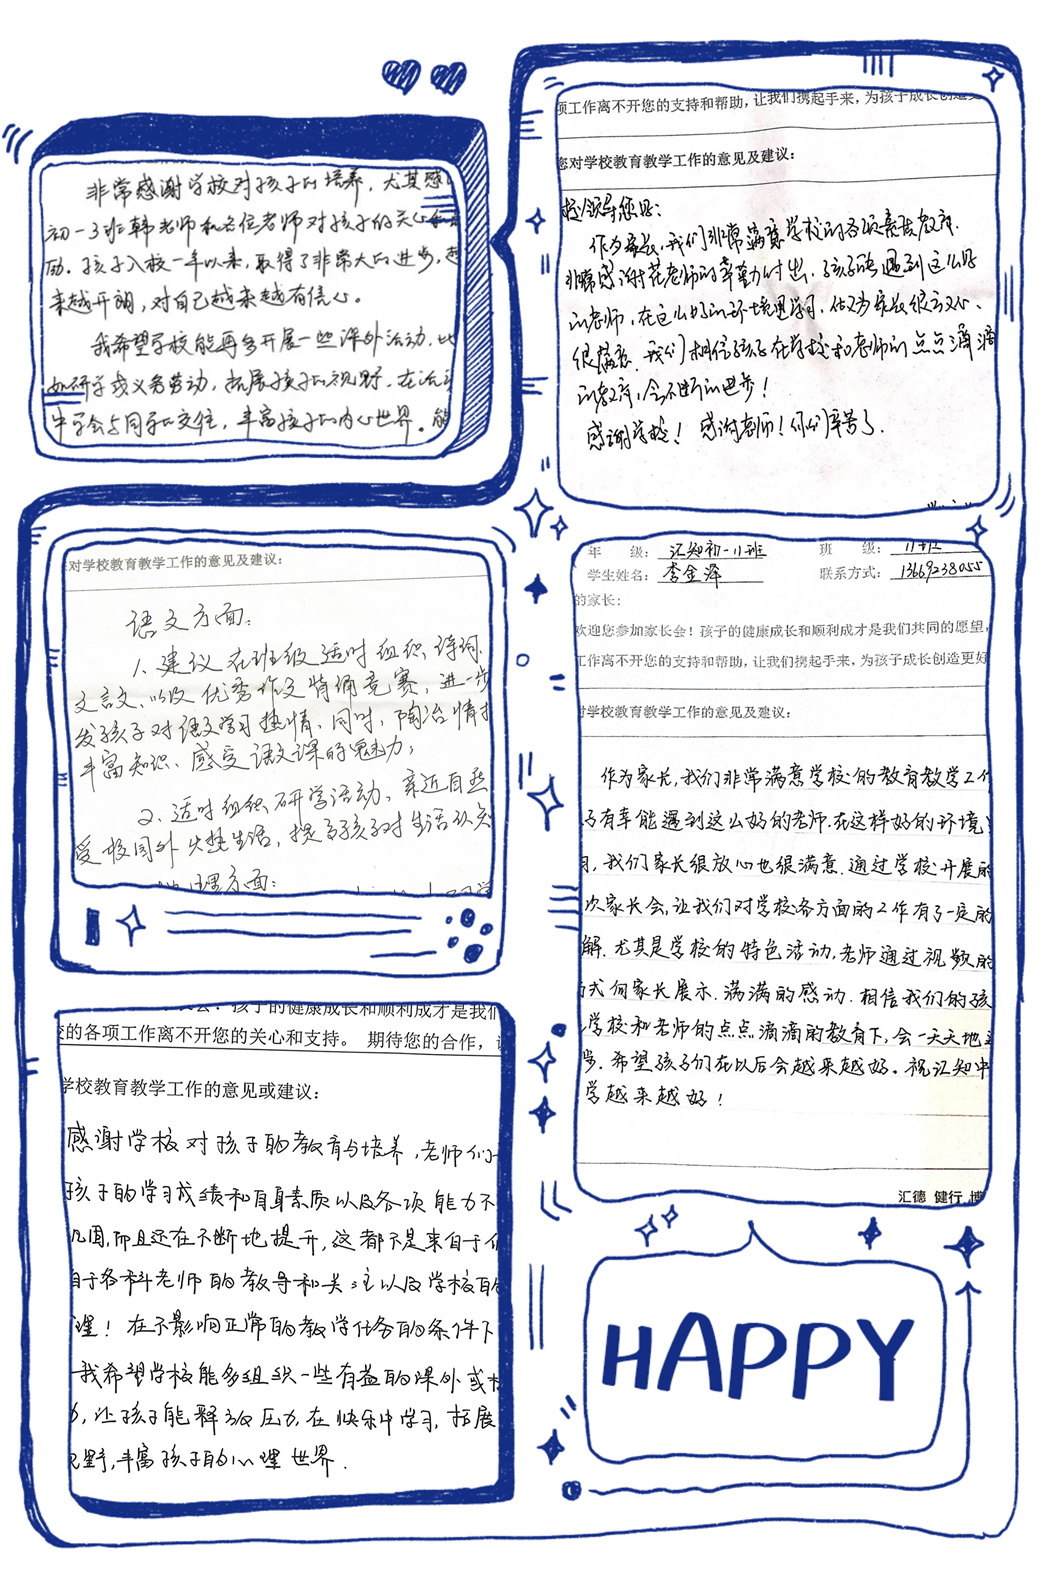 非常感谢学校对孩子的培养，尤其感
初一3班韩老师和各位老师对孩子的关心和
励。孩子入校一年以来，取得了非常大的进步，越
来越开朗，对自己越来越有信心。
我希望学校能再多开展一些课外活动，比
如研学或义务劳动，拓展孩子的视野，在活动
中学会与同学的交往，丰富孩子的内心世界。
项工作离不开您的支持和帮助，让我们携起手来，为孩子成长创造更
您对学校教育教学工作的意见及建议：
校领导您好：
作为家长，我们非常满意学校的各项素质教育
非常感谢范老师的辛勤付出，孩子能遇到这么好
的老师，在这么好的环境里学习，作为家长很放心、
很满意。我们相信孩子在学校和老师的点点滴滴
的教育，会不断的进步！
感谢学校！感谢老师！你们辛苦了。
对学校教育教学工作的意见及建议：
语文方面：
1、建议在班级适时组织诗词
文言文、以及优秀作文背诵竞赛，进一步
发孩子对语文学习热情，同时，陶冶情操
丰富知识、感受语文课的魅力；
2、适时组织研学活动、亲近自然
受校园外火热生活，提高孩子对生活认知
理方面：
年 级：汇知初一11班 班 级：11班
学生姓名：李金泽 联系方式：13669238055
的家长：
欢迎您参加家长会！孩子的健康成长和顺利成才是我们共同的愿望，
工作离不开您的支持和帮助，让我们携起手来，为孩子成长创造更好
对学校教育教学工作的意见及建议：
作为家长，我们非常满意学校的教育教学工作
子有幸能遇到这么好的老师，在这样好的环境
我们家长很放心也很满意，通过学校开展的
次家长会，让我们对学校各方面的工作有了一定的
解，尤其是学校的特色活动，老师通过视频的
式向家长展示，满满的感动，相信我们的孩
学校和老师的点点滴滴的教育下，会一天天地进
步，希望孩子们在以后会越来越好。祝汇知中
学越来越好！
汇德 健行 博
孩子的健康成长和顺利成才是我们
校的各项工作离不开您的关心和支持。 期待您的合作，
学校教育教学工作的意见或建议：
感谢学校对孩子的教育与培养，老师们
孩子的学习成绩和自身素质以及各项能力不
巩固，而且还在不断地提升，这都不是来自于
自于各科老师的教导和关注以及学校的
理！在不影响正常的教学任务的条件下
我希望学校能多组织一些有益的课外或校
让孩子能释放压力，在快乐中学习，拓展
视野，丰富孩子的心理世界.
HAPPY